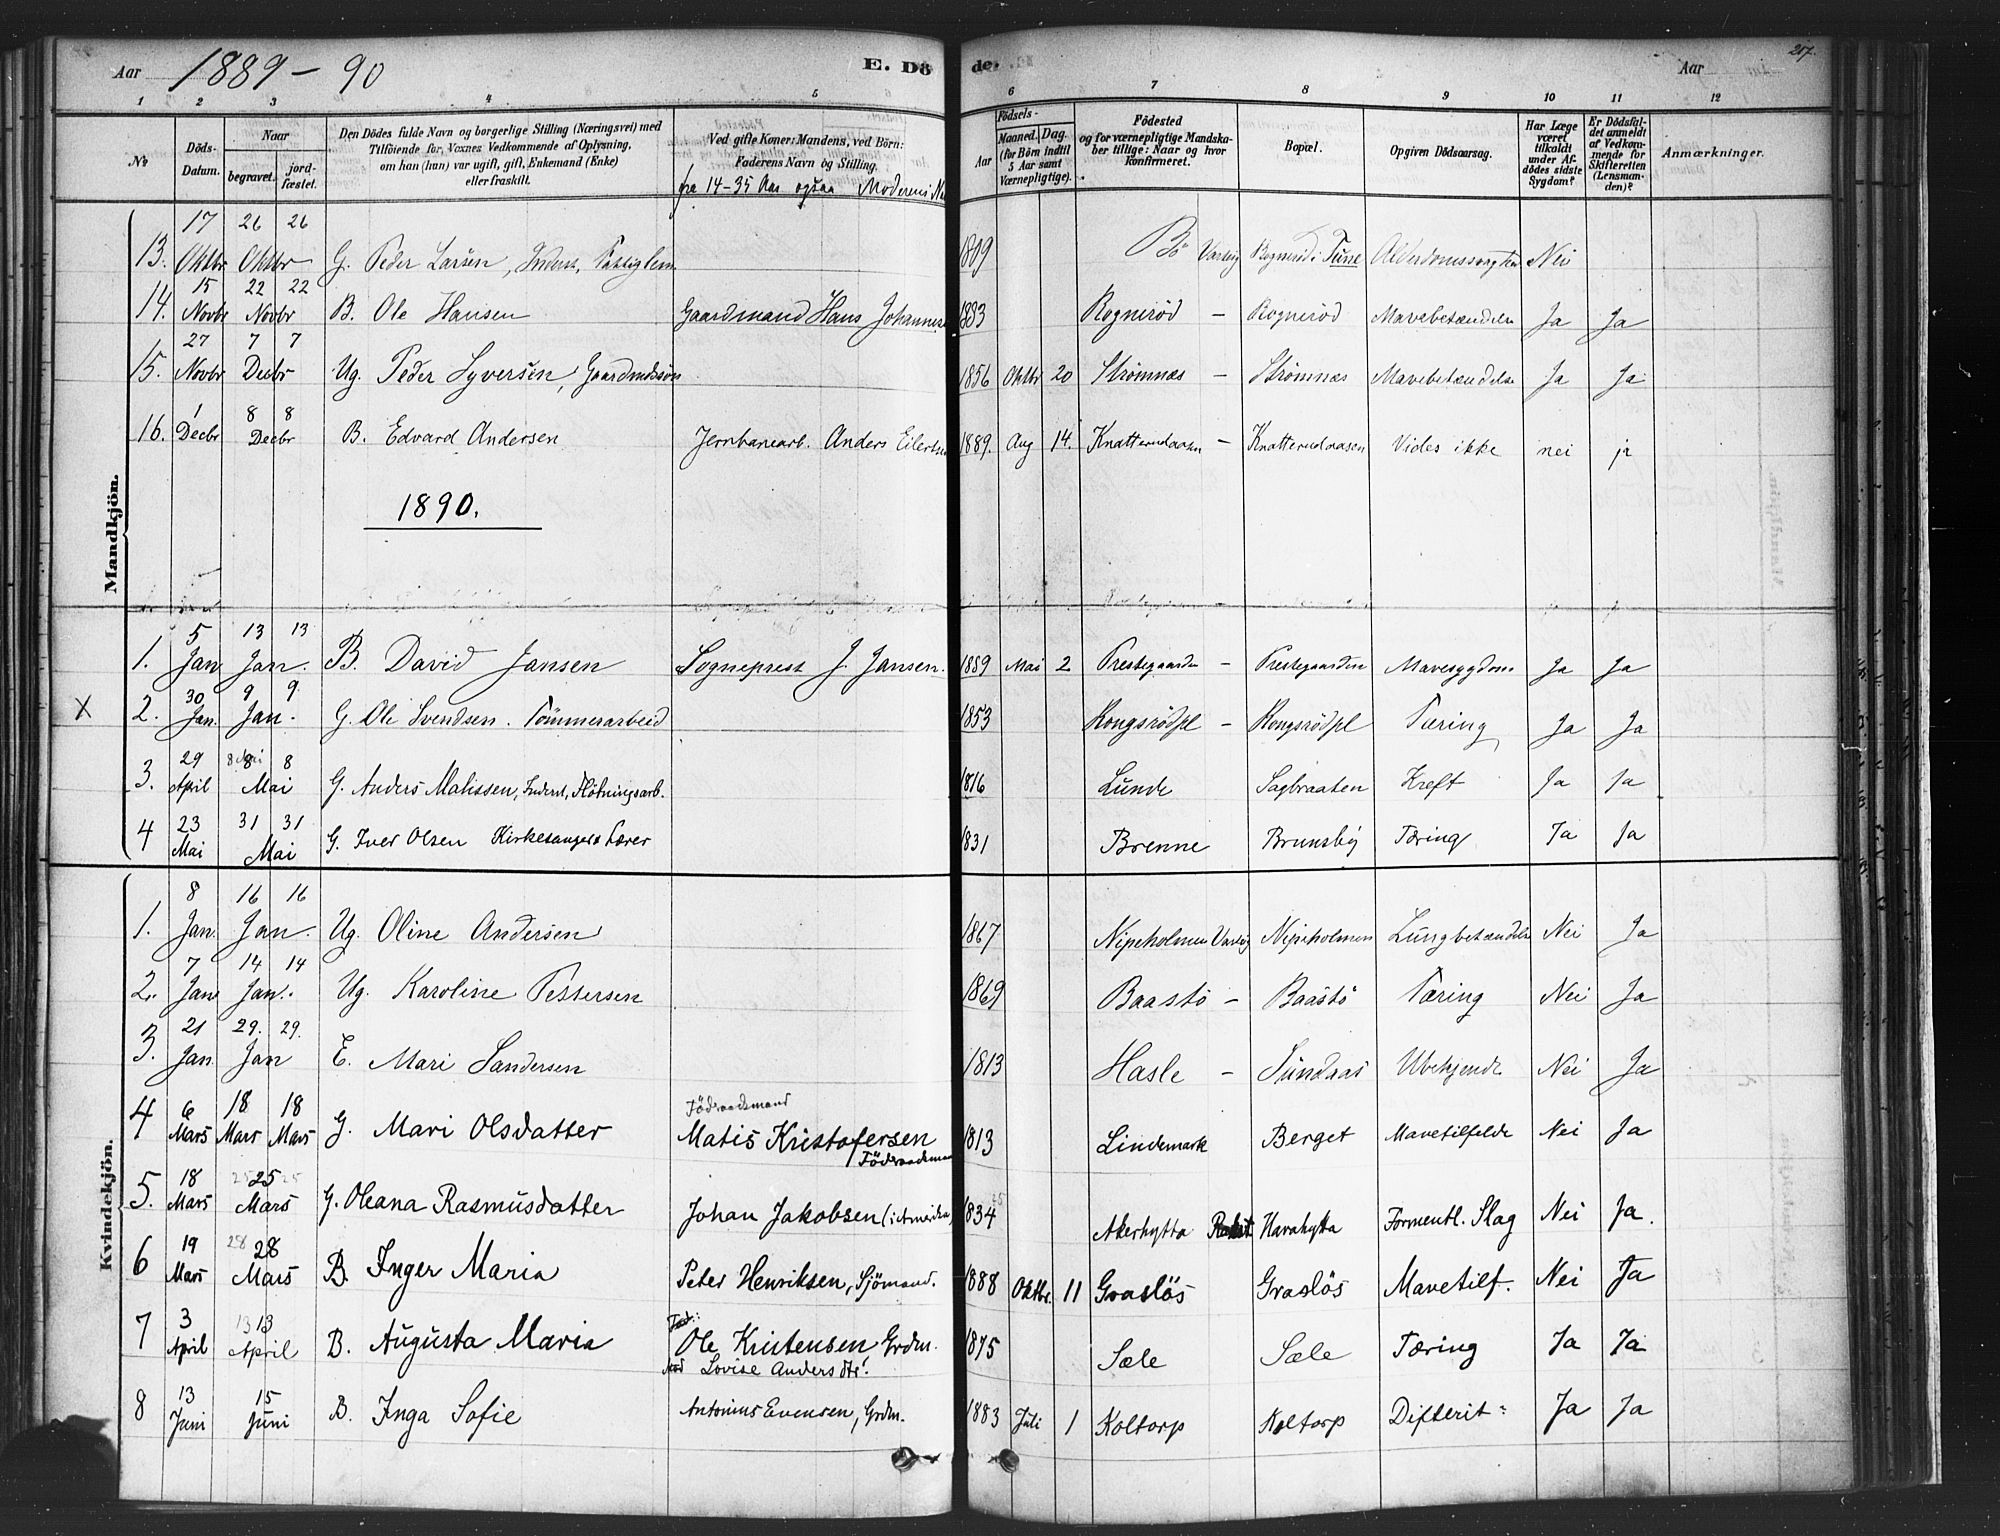 Aar 1889-90 E. Dö de. Aar 207.
1 2 3 4 5 6 7 8 9 10 11 12
No Döds-Datum. Naar begravet. jord-fæstet. Den Dödes fulde Navn og borgerlige Stilling (Næringsvei) med Tilföiende for Voxnes Vedkommende af Oplysning, om han (hun) var ugift, gift, Enkemand (Enke) eller fraskilt. Ved gifte Koner: Mandens, ved Börn: Faderens Navn og Stilling. fra 14-35 Aar ogsaa Moderens Aar Födsels- Maaned. Dag. (for Börn indtil 5 Aar samt Værnepligtige). Födested og for værnepligtige Mandskaber tillige: Naar og hvor Konfirmeret. Bopæl. Opgiven Dödsaarsag. Har Læge været tilkaldt under Afdödes sidste Sygdom? Er Dödsfaldet anmeldt af Vedkommende for Skifteretten (Lensmanden)? Anmærkninger.
Mandkjön.
17 26 26
13. Oktbr Oktbr G. Peder Larsen, Inderst, Fattiglem 1809 Bö Varteig Rogneröd i Tune Nei
15 22 22
14. Novbr Novbr B. Ole Hansen Gaardmand Hans 1883 Rognerød - Rognerød Mavebetændelse Ja Ja
27 7 7
15. Novbr Decbr Ug. Peder Syversen, Gaardmdssøn 1856 Oktbr 20 Strømnæs - Strømnæs Mavebetændelse Ja Ja
1 8 8
16. Decbr Decbr B. Edvard Andersen Jernbanearb. Anders Eilertsen 1889. Aug 14. Knatterudaasen - Knatterudaasen Vides ikke nei ja
1890.
5 13 13
1. Jan Jan. B. David Jansen Sogneprest J. Jansen. 1889 Mai 2 Prestegaarden - Prestegaarden Mavesygdom Ja Ja
30 9 9
X 2. Jan. Jan. G. Ole Svendsen. Tömmerarbeid 1853 Kongsrödpl - Kongsrödpl Tæring Ja Ja
29 8 8
3. April Mai G. Anders Matissen, Inderst, Flötningsarb. 1816 Lunde Sagbraaten Kreft Ja Ja
23 31 31
4 Mai Mai G. Iver Olsen Kirkesanger & Lærer 1831 Brenne Brunsby Tæring Ja Ja
Kvindekjön.
8 16 16
1. Jan. Jan. Ug. Oline Andersen 1867 Nipeholmen Varteig Nipeholmen Lungbetændelse Nei Ja
7 14 14
2. Jan Jan. Ug. Karoline Pettersen 1869 Baastö - Baastö Tæring Nei Ja
21 29. 29.
3. Jan. Jan E. Mari Sandersen 1813 Hasle - Sundaas Ubekjendt Nei Ja
6 18 18 Födraadsmand
4 Mars Mars Mars G. Mari Olsdatter Matis Kristofersen 1813 Lindemark Berget Mavetilfelde Nei Ja
18 25 Födraadsmand
5. Mars Mars G. Oleana Rasmusdatter Johan Jakobsen (i Amerika) 1834 Akerhytta Havahytta Formentl. Slag Nei Ja.
19 28
6 Mars Mars B. Inger Maria Peter Henriksen, Sjömand. 1888 Oktbr. 11 Graslös Graslös Mavetilf. Nei Ja
3 13 Fad.:
7 April April B. Augusta Maria Ole Kristensen Grdm. 1875 Sæle Sæle Tæring Ja Ja
Mod Lovise Andersdtr.
13 15
8 Juni Juni B. Inga Sofie Antonius Evensen, Grdm. 1883 Juli 1 Koltorp Koltorp Difterit Ja Ja